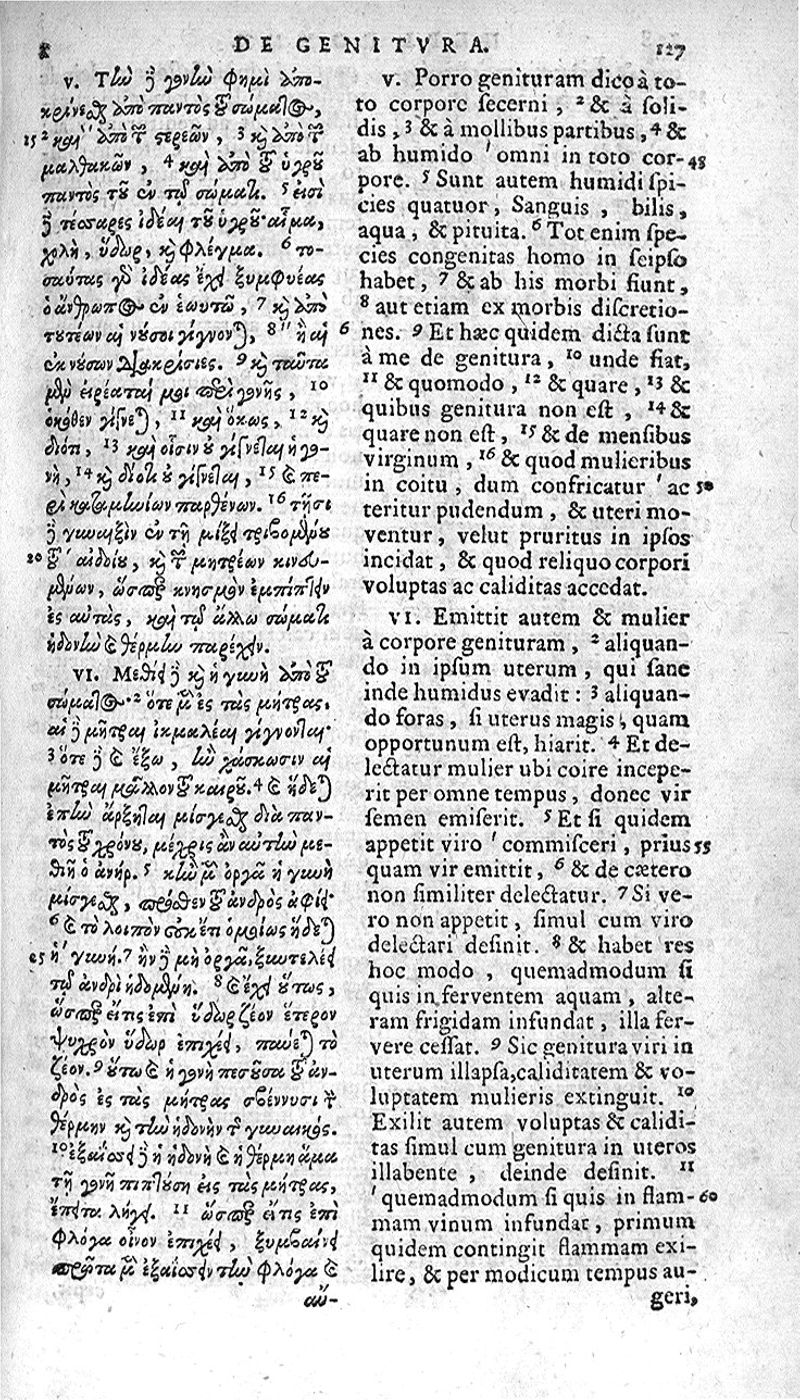 DE GENITVRA. 127
v. Τὴν δὲ γονὴν φημὶ ἀπο-
κρίνεσθαι ἀπὸ παντὸς τοῦ σώματος,
15 2 καὶ ἀπὸ τῶν στερεῶν, 3 καὶ ἀπὸ τῶν
μαλθακῶν, 4 καὶ ἀπὸ τοῦ ὑγροῦ
παντὸς τοῦ ἐν τῷ σώματι. 5 εἰσὶ
δὲ τέσσαρες ἰδέαι τοῦ ὑγροῦ· αἷμα,
χολὴ, ὕδωρ, καὶ φλέγμα. 6 το-
σαύτας γὰρ ἰδέας ἔχει ξυμφυέας
ὁ ἄνθρωπος ἐν ἑωυτῷ, 7 καὶ ἀπὸ
τουτέων αἱ νοῦσοι γίγνονται, 8 ἢ αἱ
ἐκ νούσων διακρίσιες. 9 καὶ ταῦτα
μὲν εἰρέαταί μοι περὶ γονῆς, 10
ὁκόθεν γίγνεται, 11 καὶ ὅκως, 12 καὶ
διότι, 13 καὶ οἷσιν οὐ γίγνεται ἡ γο-
νὴ, 14 καὶ διότι οὐ γίγνεται, 15 καὶ πε-
ρὶ καταμηνίων παρθένων. 16 τῇσι
δὲ γυναιξὶν ἐν τῇ μίξει τριβομένου
20 τοῦ αἰδοίου, καὶ τῶν μητρέων κινου-
μένων, ὥσπερ κνησμὸν ἐμπίπτειν
ἐς αὐτὰς, καὶ τῷ ἄλλῳ σώματι
ἡδονὴν καὶ θέρμην παρέχειν.
VI. Μεθίει δὲ καὶ ἡ γυνὴ ἀπὸ τοῦ
σώματος· 2 ὅτε μὲν ἐς τὰς μήτρας.
αἱ δὲ μῆτραι ἰκμαλέαι γίγνονται·
3 ὅτε δὲ καὶ ἔξω, ἢν χάσκωσιν αἱ
μῆτραι μᾶλλον τοῦ καιροῦ. 4 καὶ ἥδεται
ἐπὴν ἄρξηται μίσγεσθαι διὰ παν-
τὸς τοῦ χρόνου, μέχρις ἂν αὐτὴν με-
θῇ ὁ ἀνήρ. 5 κἢν μὲν ὀργᾷ ἡ γυνὴ
μίσγεσθαι, πρόσθεν τοῦ ἀνδρὸς ἀφίει·
6 καὶ τὸ λοιπὸν οὐκ ἔτι ὁμοίως ἥδεται
25 ἡ γυνή. 7 ἢν δὲ μὴ ὀργᾷ, ξυντελέει
τῷ ἀνδρὶ ἡδομένη. 8 καὶ ἔχει οὕτως,
ὥσπερ εἴ τις ἐπὶ ὕδωρ ζέον ἕτερον
ψυχρὸν ὕδωρ ἐπιχέει, παύεται τὸ
ζέον. 9 οὕτω καὶ ἡ γονὴ πεσοῦσα τοῦ ἀν-
δρὸς ἐς τὰς μήτρας σβέννυσι τὴν
θέρμην καὶ τὴν ἡδονὴν τῆς γυναικός.
10 ἐξαΐσσει δὲ ἡ ἡδονὴ καὶ ἡ θέρμη ἅμα
τῇ γονῇ πιπτούσῃ εἰς τὰς μήτρας,
ἔπειτα λήγει. 11 ὥσπερ εἴ τις ἐπὶ
φλόγα οἶνον ἐπιχέει, ξυμβαίνει
πρῶτα μὲν ἐξαΐσσειν τὴν φλόγα καὶ
αὔ-
v. Porro genituram dico à to-
to corpore secerni, 2 & à soli-
dis, 3 & à mollibus partibus, 4 &
ab humido ' omni in toto cor- 45
pore. 5 Sunt autem humidi spi-
cies quatuor, Sanguis, bilis,
aqua, & pituita. 6 Tot enim spe-
cies congenitas homo in seipso
habet, 7 & ab his morbi fiunt,
8 aut etiam ex morbis discretio-
6 nes. 9 Et hæc quidem dicta sunt
à me de genitura, 10 unde fiat,
11 & quomodo, 12 & quare, 13 &
quibus genitura non est, 14 &
quare non est, 15 & de mensibus
virginum, 16 & quod mulieribus
in coitu, dum confricatur ' ac 50
teritur pudendum, & uteri mo-
ventur, velut pruritus in ipsos
incidat, & quod reliquo corpori
voluptas ac caliditas accedat.
VI. Emittit autem & mulier
à corpore genituram, 2 aliquan-
do in ipsum uterum, qui sane
inde humidus evadit: 3 aliquan-
do foras, si uterus magis, quam
opportunum est, hiarit. 4 Et de-
lectatur mulier ubi coire incepe-
rit per omne tempus, donec vir
semen emiserit. 5 Et si quidem
appetit viro ' commisceri, prius 55
quam vir emittit, 6 & de cætero
non similiter delectatur. 7 Si ve-
ro non appetit, simul cum viro
delectari desinit. 8 & habet res
hoc modo, quemadmodum si
quis in ferventem aquam, alte-
ram frigidam infundat, illa fer-
vere cessat. 9 Sic genitura viri in
uterum illapsa, caliditatem & vo-
luptatem mulieris extinguit. 10
Exilit autem voluptas & calidi-
tas simul cum genitura in uteros
illabente, deinde desinit. 11
' quemadmodum si quis in flam- 60
mam vinum infundat, primum
quidem contingit flammam exi-
lire, & per modicum tempus au-
geri,